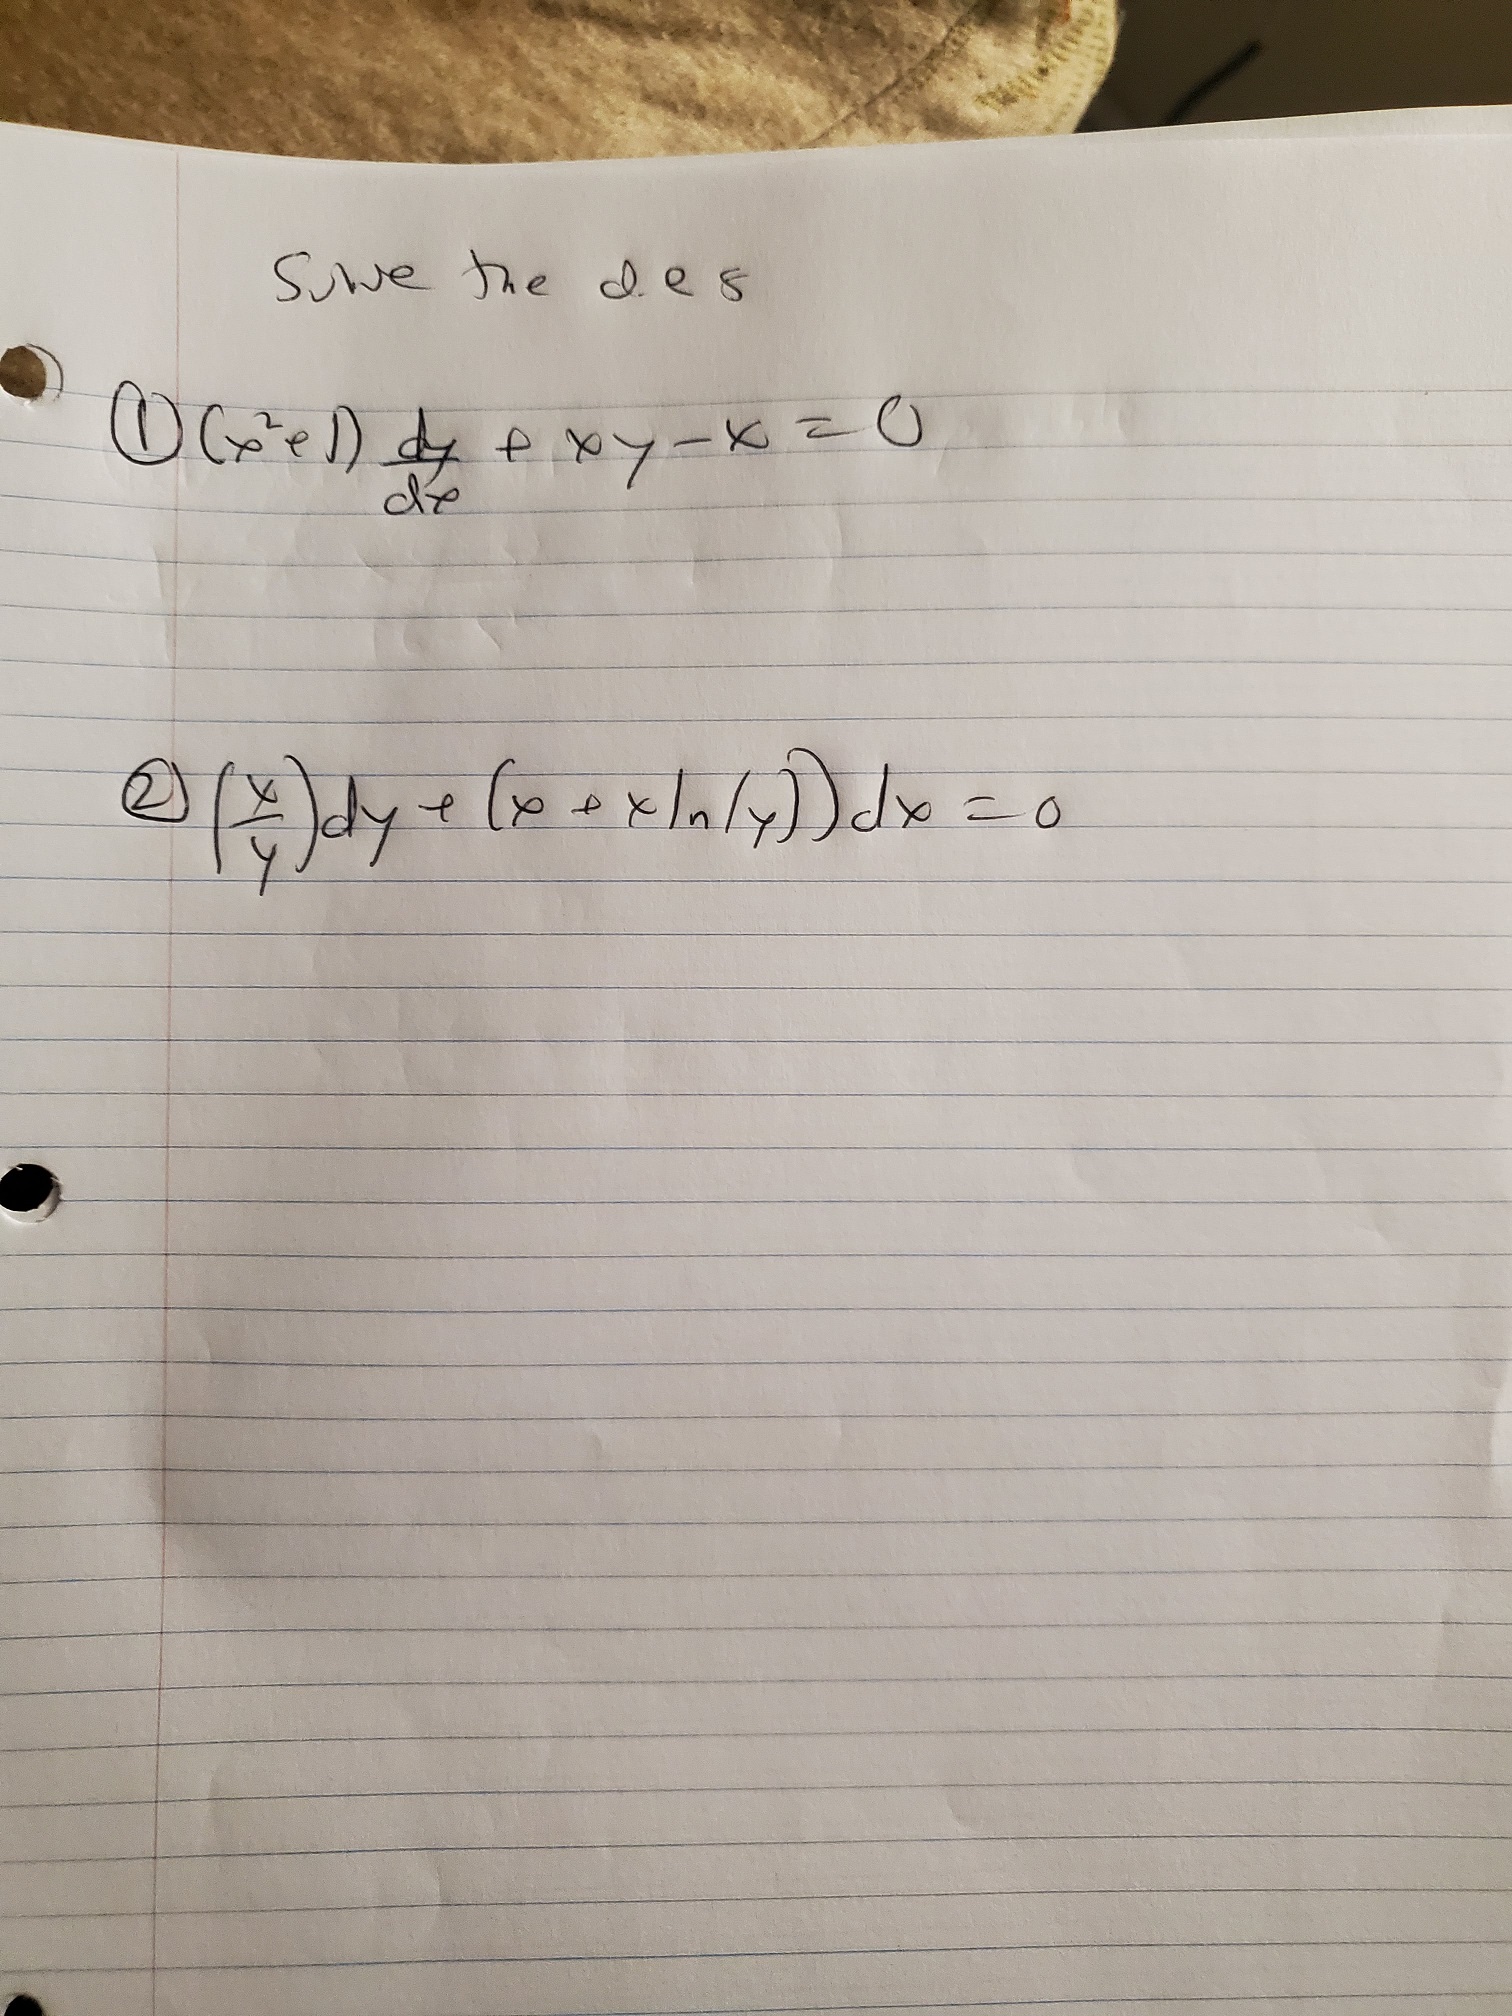 Solve the des
① (x²+1) dy/dx + xy - x = 0
② (x/y)dy + (x + x ln(y))dx = 0